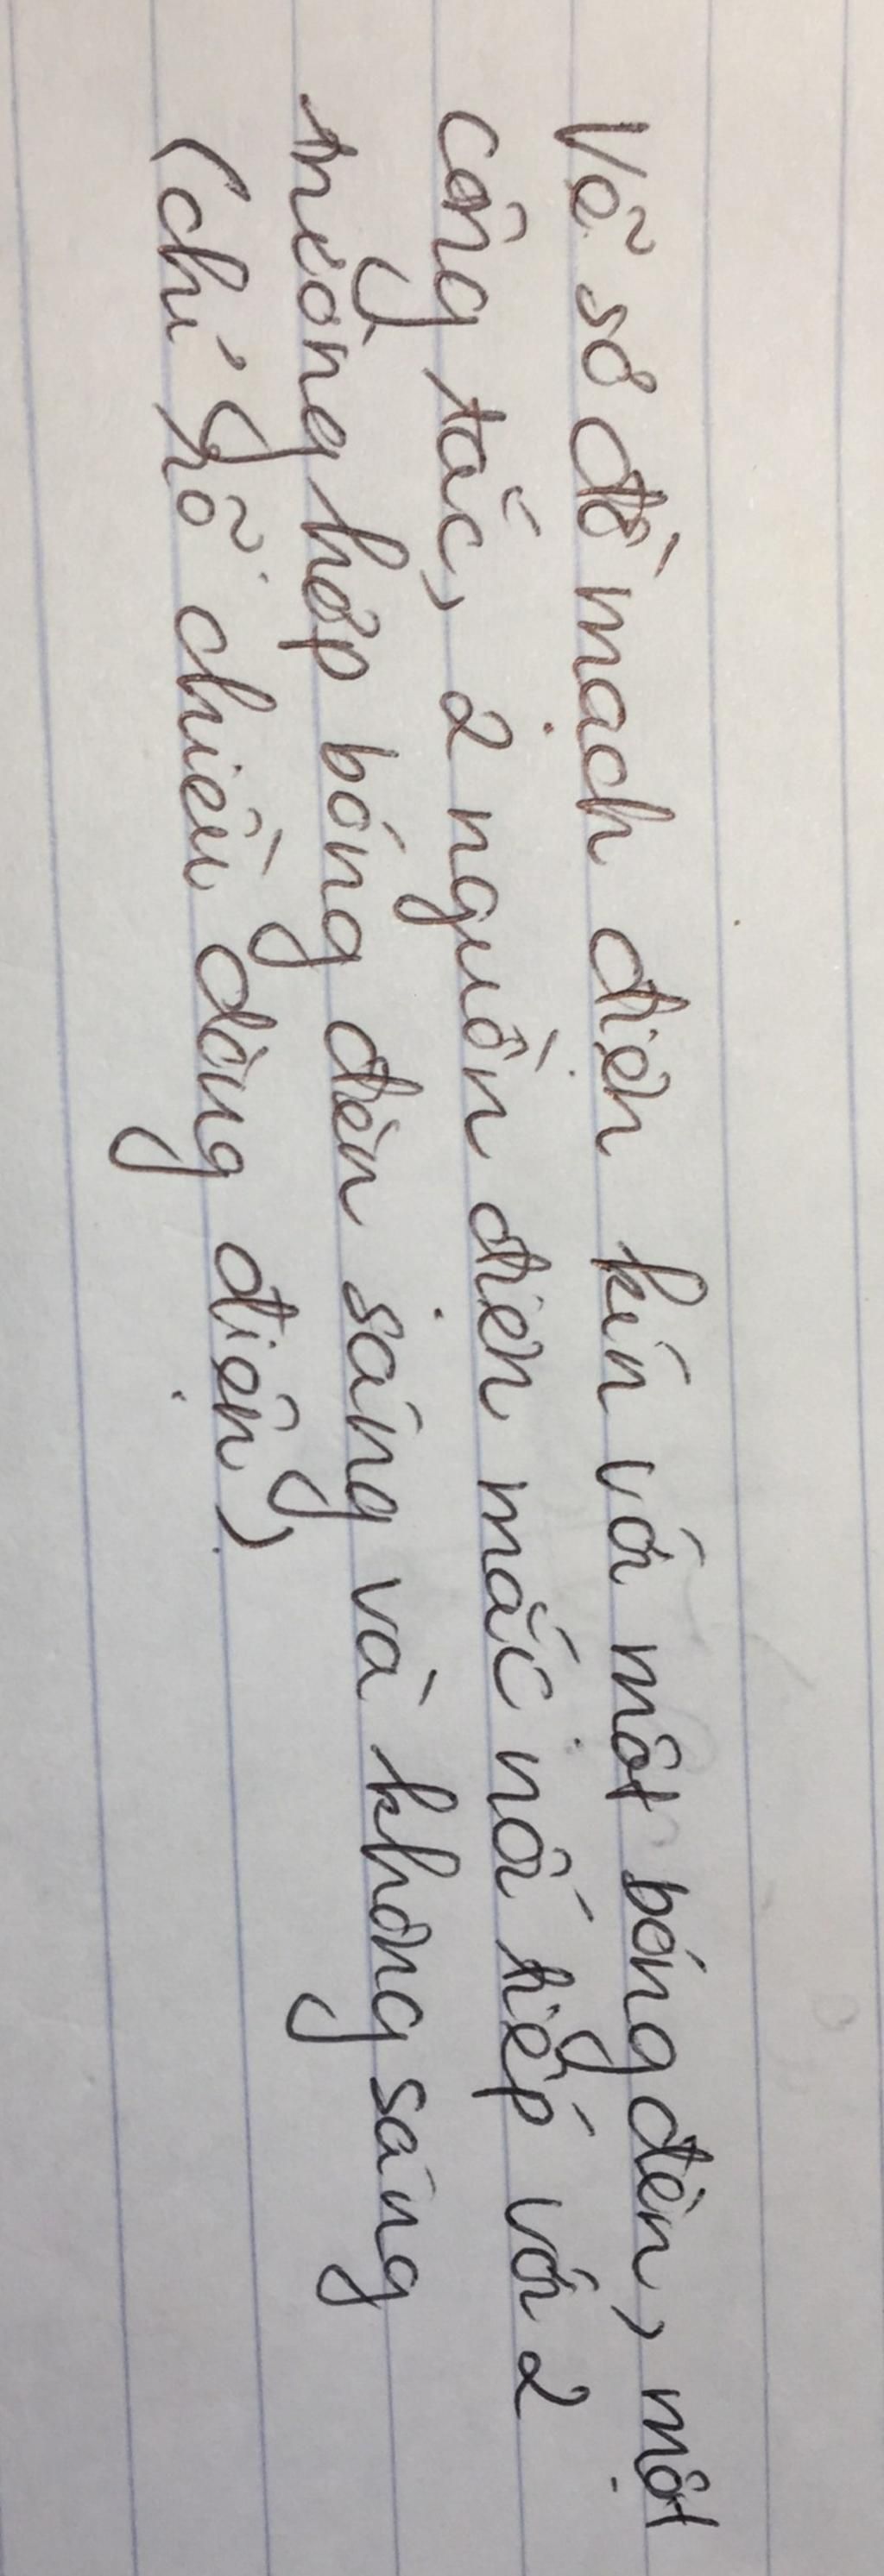 Vẽ sơ đồ mạch điện kín với một bóng đèn, một
công tắc, 2 nguồn điện mắc nối tiếp với 2
trường hợp bóng đèn sáng và không sáng
(chỉ rõ chiều dòng điện)